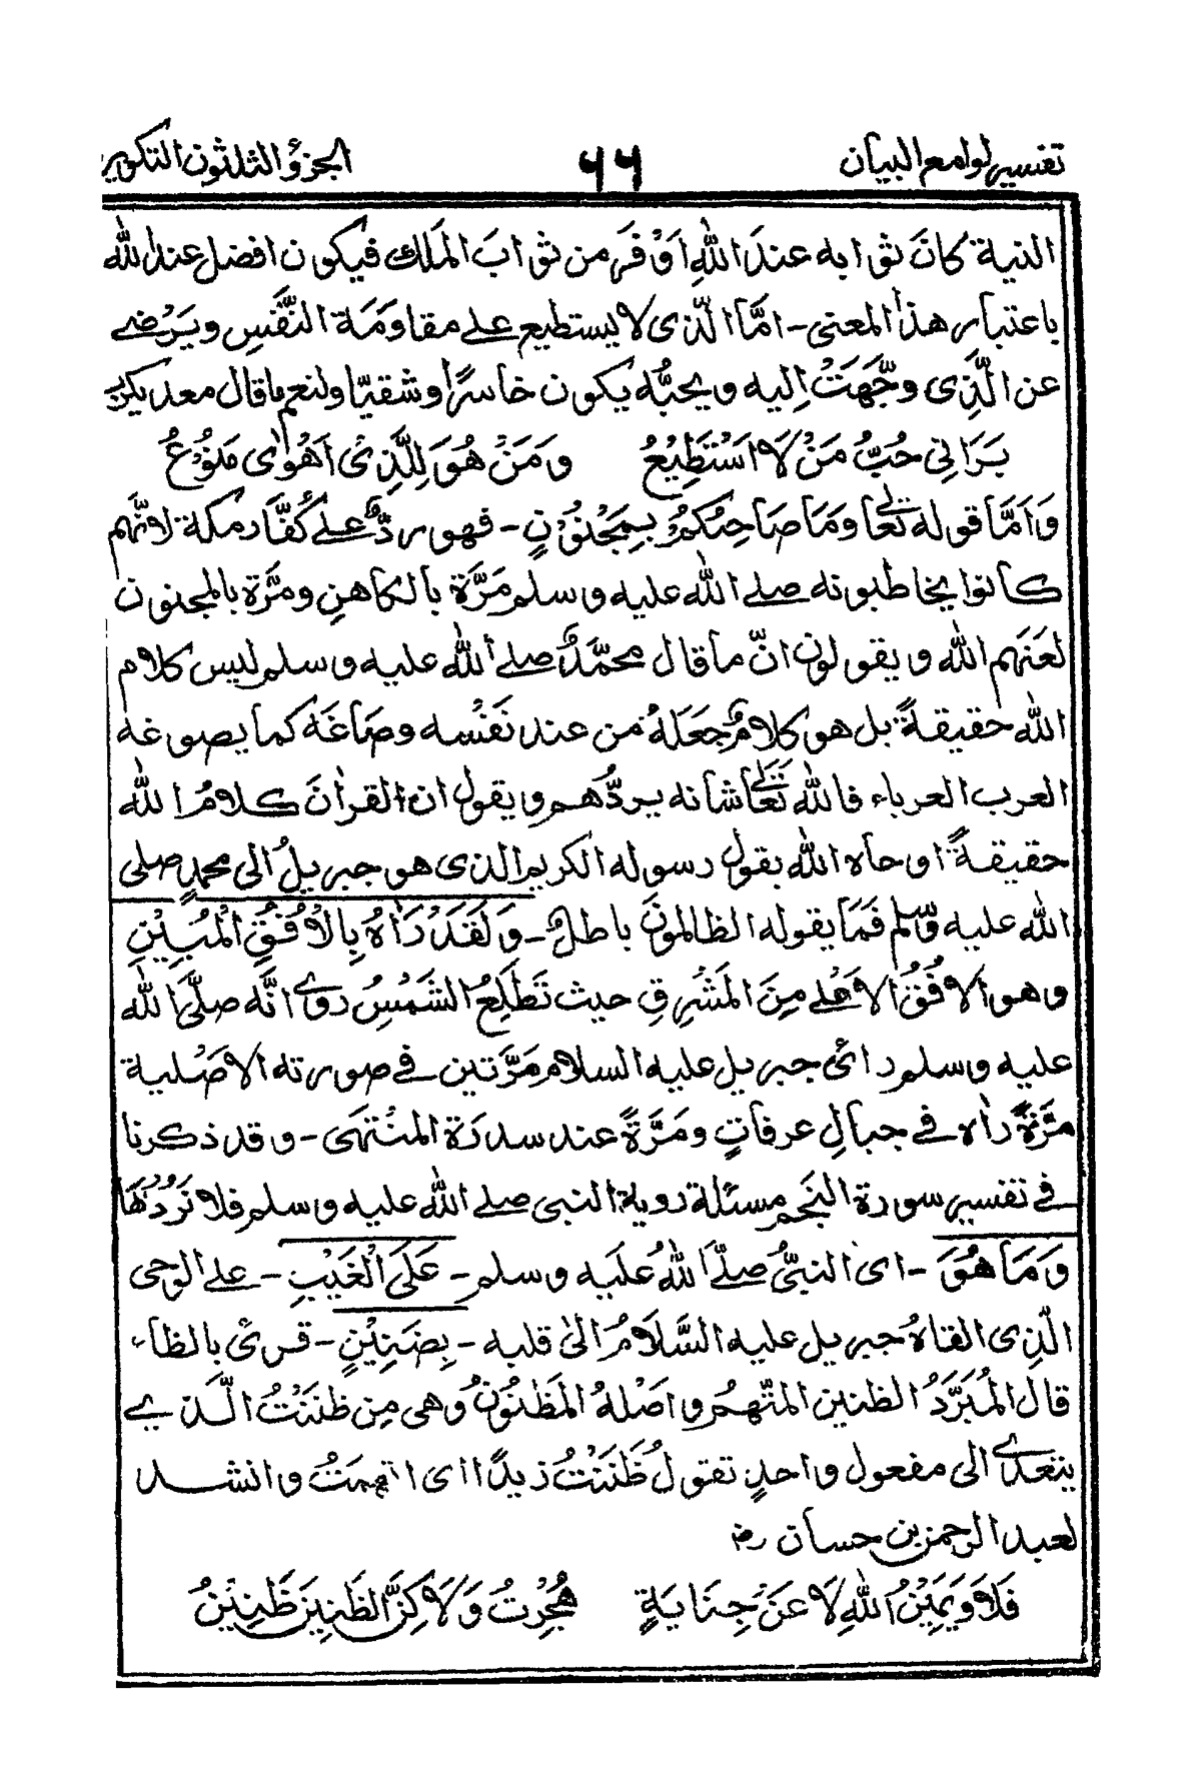 تفسير لوامع البيان ٦٦ الجزؤ الثلثون التكوير
النية كانَ ثوابه عندَ اللهِ اَوْفَر من ثوابَ المَلك فيكون افضل عند الله
باعتبار هذا المعنى - امّا الّذى لا يستطيع على مقاومَة النَّفسِ ويَرْضے
عن الَّذِى وجَّهَتْ اِليه ويحبُّه يكون خاسرًا وشقيّا ولنعم ما قال معديكرب
بَرَانِي حُبُّ مَنْ لَا اَسْتَطِيعُ وَمَنْ هُوَ لِلَّذِىْ اَهْوٰى مَنُوْعُ
وَاَمَّا قوله تعَالٰى وَمَا صَاحِبُكُمْ بِمَجْنُوْنٍ - فهو ردٌّ علے كُفَّار مكة لانَّهم
كانوا يخاطبونه صلے الله عليه وسلم مَرَّة بالكاهنِ ومرَّة بالمجنون
لعَنَهم الله ويقولون انّ ما قال محمَّدٌ صلے الله عليه وسلم ليس كلام
الله حقيقةً بل هو كلامٌ جَعَلهُ من عند نَفْسه وصَاغَهُ كما يصوغه
العرب العرباء فالله تعَالٰى شانه يردُّهم ويقول ان القرانَ كلامُ الله
حقيقةً اوحاه الله بقول رسوله الكريم الذى هو جبريلُ الى محمدٍ صلى
الله عليه وسلّم فَمَا يقوله الظالمونَ باطلٌ - وَلَقَدْ رَاٰهُ بِالْاُفُقِ الْمُبِيْنِ
وهو الافُقُ الاَعْلے مِنَ المَشْرِقِ حيث تَطْلِعُ الشَّمْسُ روے انَّه صلَّى الله
عليه وسلم رائ جبريل عليه السلام مَرَّتين فے صورته الاَصْلية
مرَّةً راٰه فے جبالِ عرفاتٍ ومَرَّةً عند سدرَة المنْتَهى - وقد ذكرنا
فے تفسير سورة النجم مسئلة روية النبى صلے الله عليه وسلم فلا نَرُدُّهَا
وَمَا هُوَ - اى النبىُّ صلَّے اللهُ عَليه وسلم - عَلَى الْغَيْبِ - علے الوحى
الّذِى القاهُ جبريل عليه السَّلَامُ الىٰ قلبه - بِضَنِيْنٍ - قرئ بالظاء
قال المُبَرَّدُ الظنين المتّهم واصْلهُ المَظنُونُ وهى مِن ظنَنْتُ الّذے
يتعدّے الى مفعول واحدٍ تقول ظَنَنْتُ زيدًا اى اتّهمتُ وانشد
لعبد الرحمن بن حسان رض
فَلَا وَيَمِيْنُ اللهِ لَا عَنْ جِنَايَةٍ هُجِرْتُ وَلَاكِنَّ الظَنِينَ ظَنِيْنُ